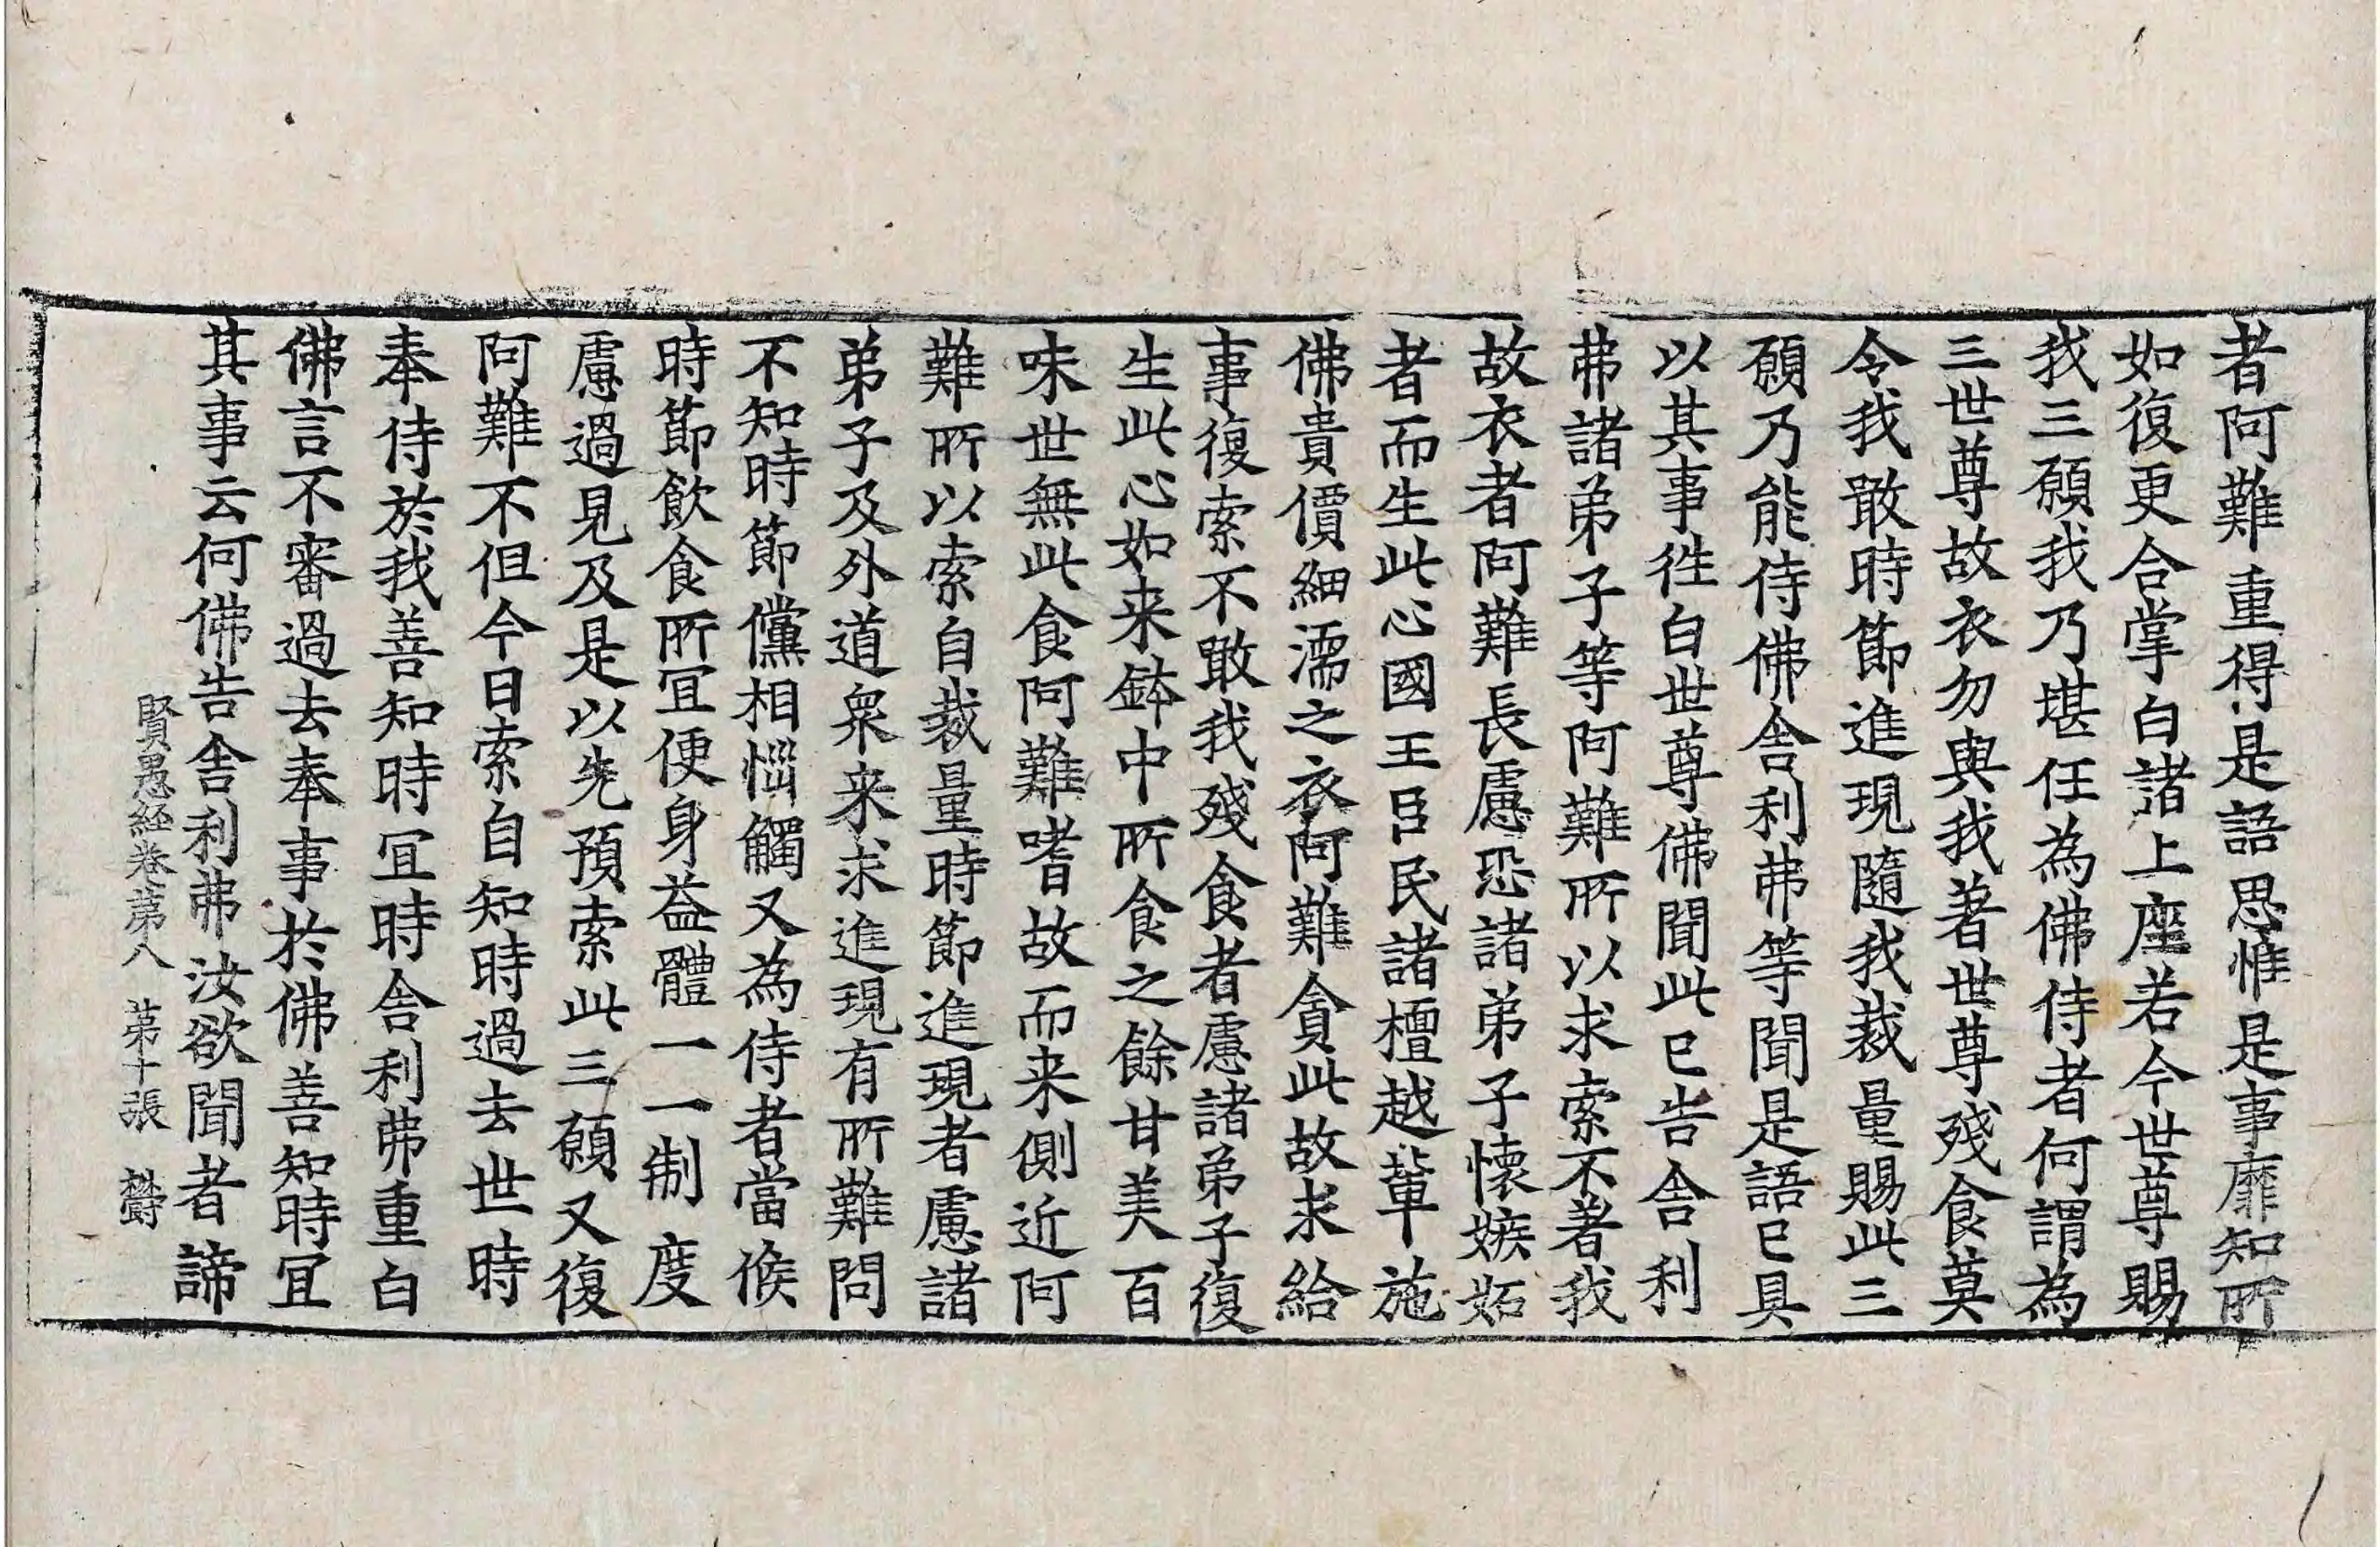 者阿難重得是語思惟是事靡知所
如復更合掌白諸上座若今世尊賜
我三願我乃堪任為佛侍者何謂為
三世尊故衣勿與我著世尊殘食莫
令我噉時節進現隨我裁量賜此三
願乃能侍佛舍利弗等聞是語已具
以其事徃白世尊佛聞此已告舍利
弗諸弟子等阿難所以求索不著我
故衣者阿難長慮恐諸弟子懷嫉妬
者而生此心國王臣民諸檀越輩施
佛貴價細濡之衣阿難貪此故求給
事復索不噉我殘食者慮諸弟子復
生此心如来鉢中所食之餘甘美百
味世無此食阿難嗜故而来側近阿
難所以索自裁量時節進現者慮諸
弟子及外道衆来求進現有所難問
不知時節儻相惱觸又為侍者當候
時節飲食所冝便身益體一一制度
慮過見及是以先預索此三願又復
阿難不但今日索自知時過去世時
奉侍於我善知時冝時舍利弗重白
佛言不審過去奉事於佛善知時冝
其事云何佛告舍利弗汝欲聞者諦
賢愚経卷第八　第十張　欝